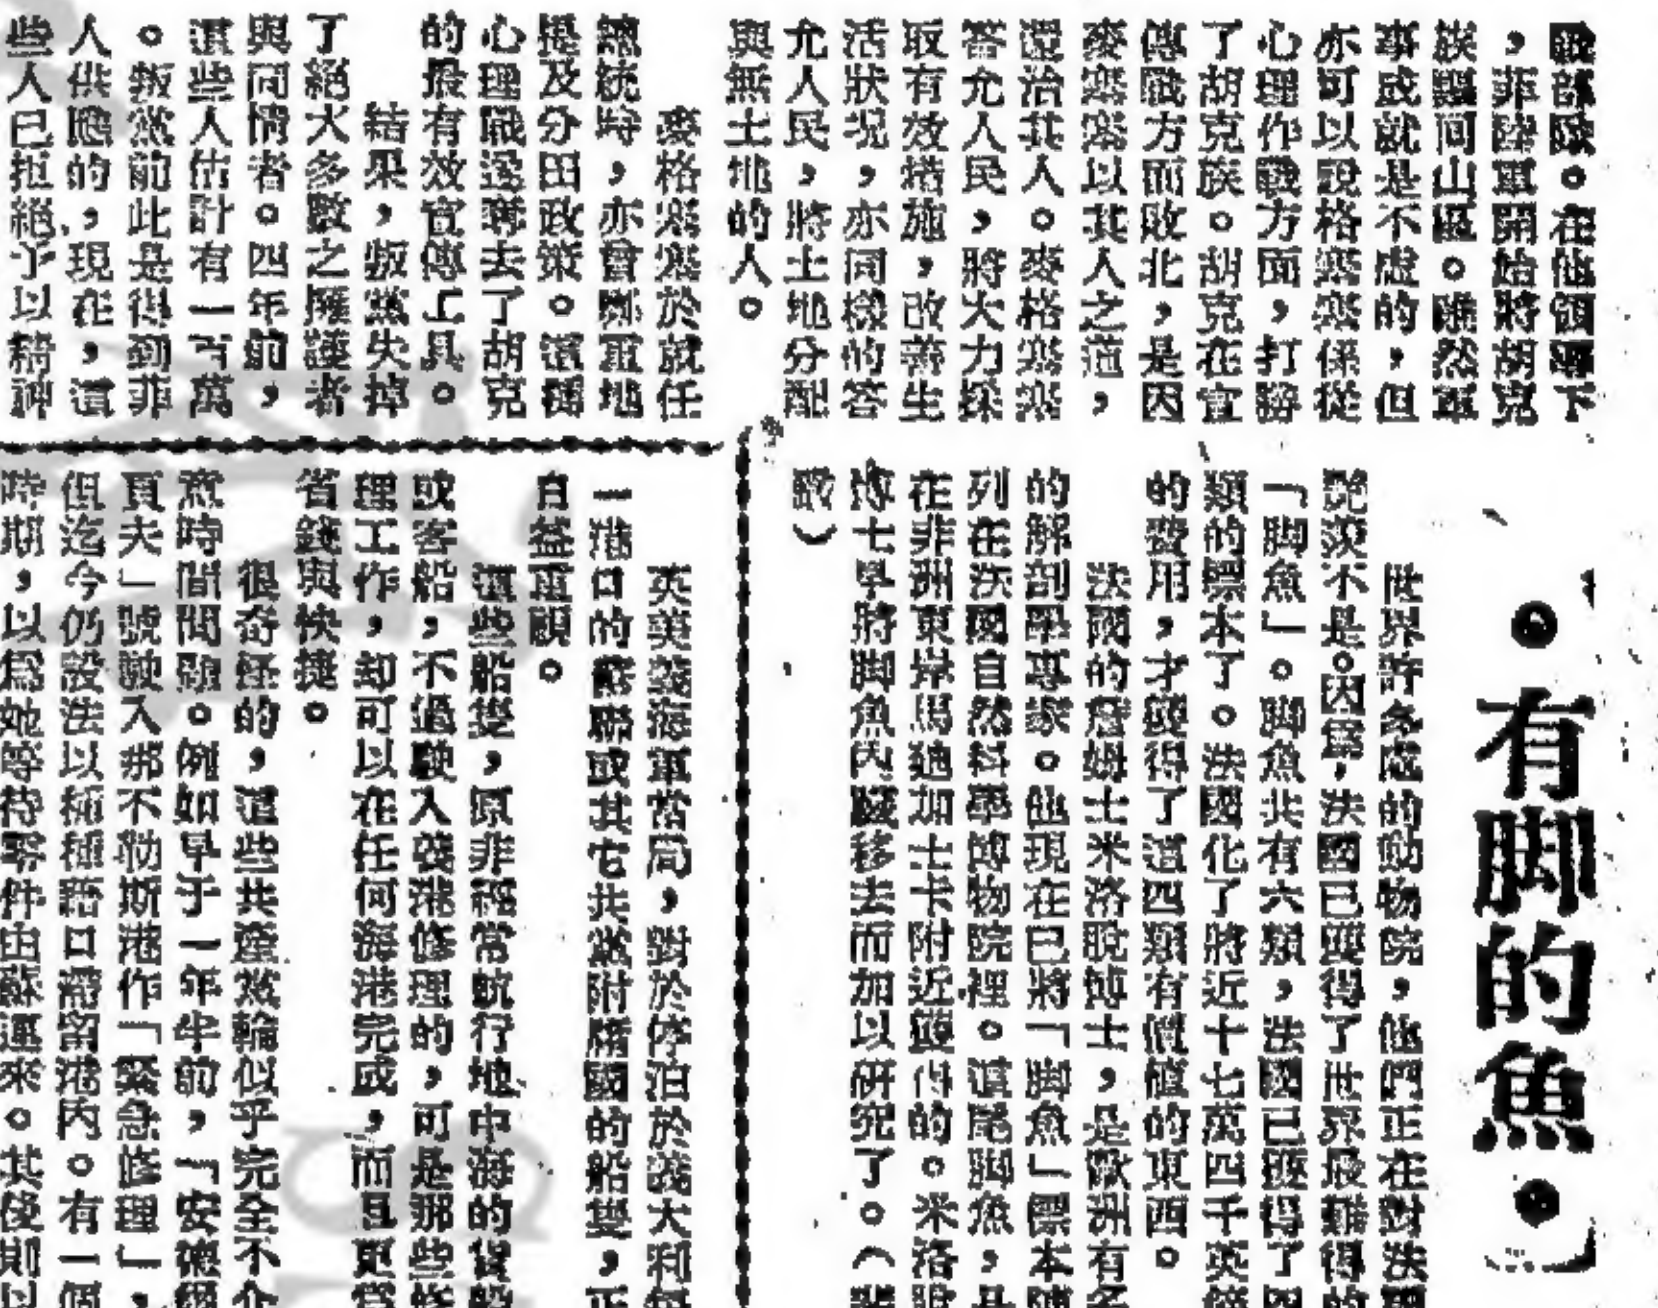 戰部隊。在他領導下
,菲陸軍開始將胡克
族驅回山區。雖然軍
事成就是不虛的,但
亦可以說格塞塞係從
心理作戰方面,打勝
了胡克族。胡克在宣
傳戰方面敗北,是因
麥塞塞以其人之道,
還治其人。麥格塞塞
答允人民,將大力採
取有效措施,改善生
活狀況,亦同樣的答
允人民,將土地分配
與無土地的人。
麥格塞塞於就任
總統時,亦曾鄭重地
提及分田政策。這種
心理戰逐奪去了胡克
的最有效宣傳工具。
結果,叛黨失掉
了絕大多數之擁護者
與同情者。四年前,
這些人估計有一百萬
。叛黨前此是得到菲
人供應的,現在,這
些人已拒絕予以精神
。有脚的魚。
世界許多處的動物院,他們正在對法國
艷羨不是。因爲,法國已獲得了世界最難得的
「脚魚」。脚魚共有六類,法國已獲得了四
類的標本了。法國化了將近十七萬四千英鎊
的費用,才獲得了這四類有價值的東西。
法國的詹姆士米洛脫博士,是歐洲有名
的解剖學專家。他現在已將「脚魚」標本陳
列在法國自然科學博物院裡。這尾脚魚,是
在非洲東岸馬達加士卡附近獲得的。米洛脫
博士早將脚魚內臟移去而加以研究了。(
敬)
英美義海軍當局,對於停泊於義大利每
一港口的蘇聯或其它共黨附庸國的船隻,正
日益重視。
這些船隻,原非經常航行地中海的貨船
或客船,不過駛入義港修理的,可是那些修
理工作,却可以在任何海港完成,而且更爲
省錢與快捷。
很奇怪的,這些共產黨輪似乎完全不介
意時間問題。例如早于一年半前,「安德
頁夫」號駛入那不勒斯港作「緊急修理」,
但迄今仍設法以種種藉口滯留港內。有一個
時期,以爲她等待零件由蘇運來。其後則以